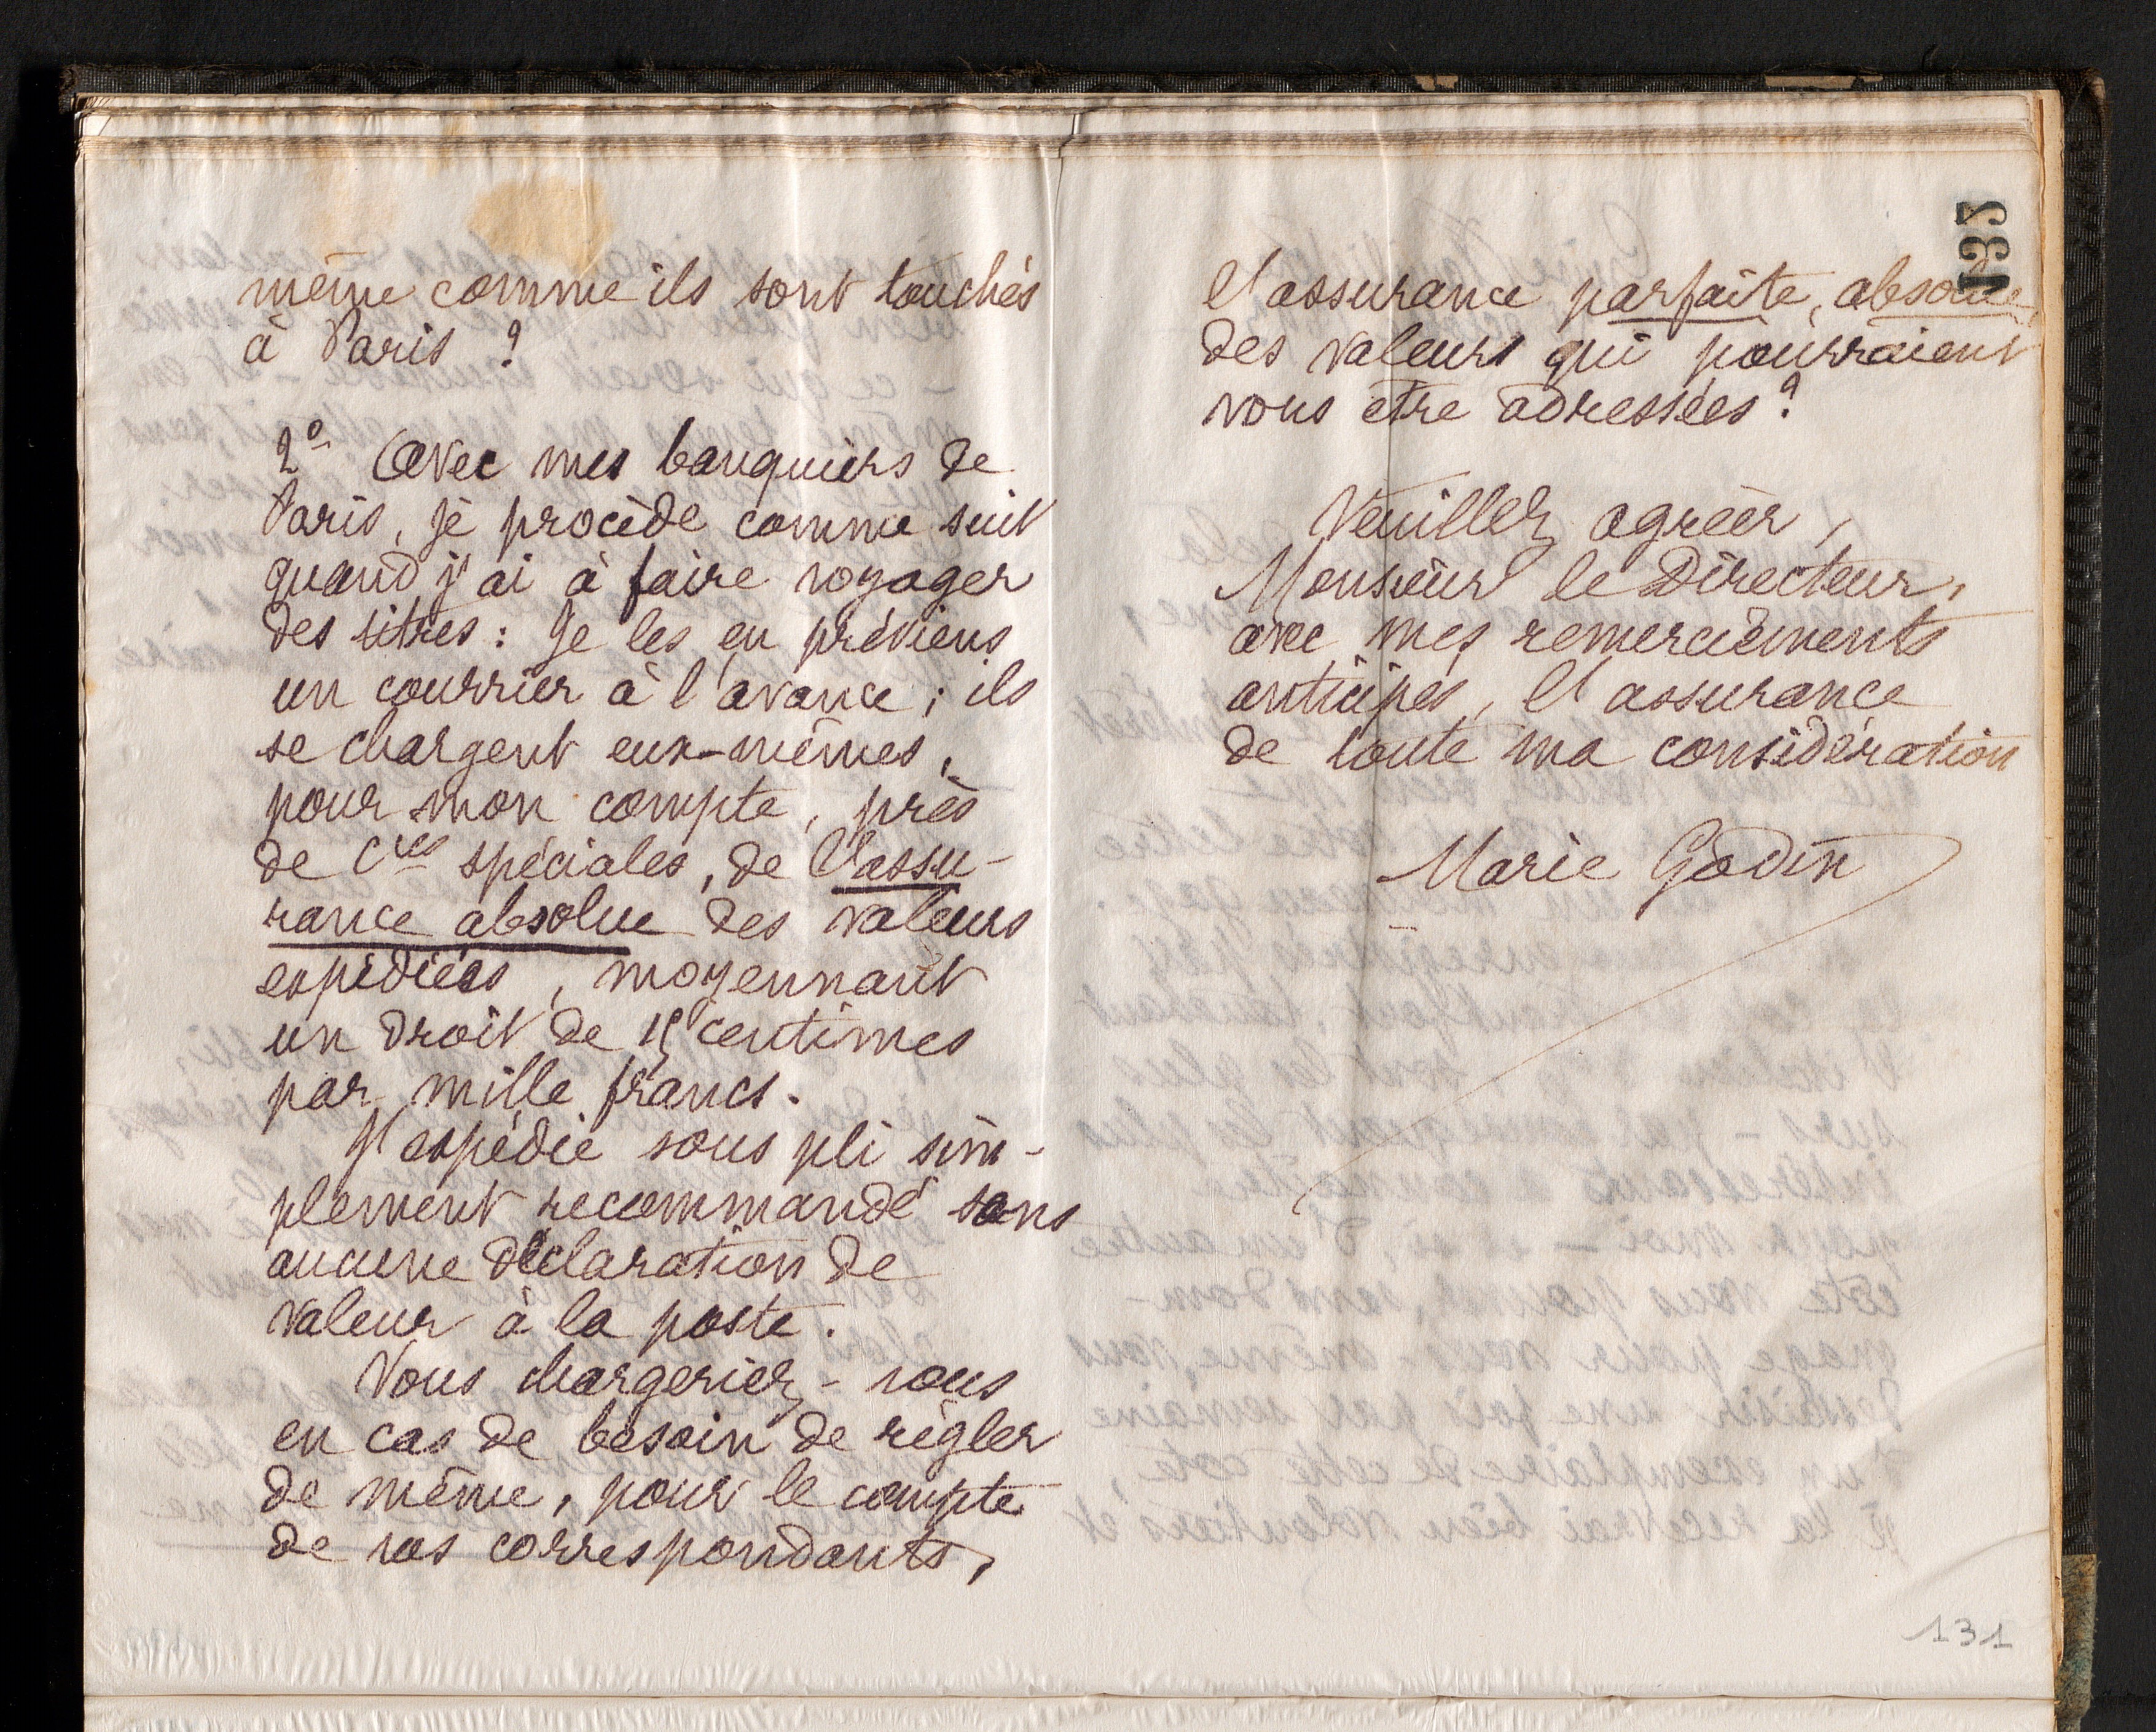 même comme ils sont touchés
à Paris ?
2º Avec mes banquiers de
Paris, je procède comme suit
quand j'ai à faire voyager
des titres : Je les en préviens
un courrier à l'avance ; ils
se chargent eux-mêmes,
pour mon compte, près
de Cies spéciales, de l'assu-
rance absolue des valeurs
expédiées, moyennant
un droit de centimes
par mille francs.
J'expédie sous pli sim-
plement recommandé sans
aucune déclaration de
valeur à la poste.
Vous chargeriez-vous
en cas de besoin de régler
de même, pour le compte
de vos correspondants,
l'assurance parfaite, absolue,
des valeurs qui pourraient
vous être adressées ?
Veuillez agréer,
Monsieur le Directeur,
avec mes remerciements
anticipés, l'assurance
de toute ma considération
Marie Godin
131